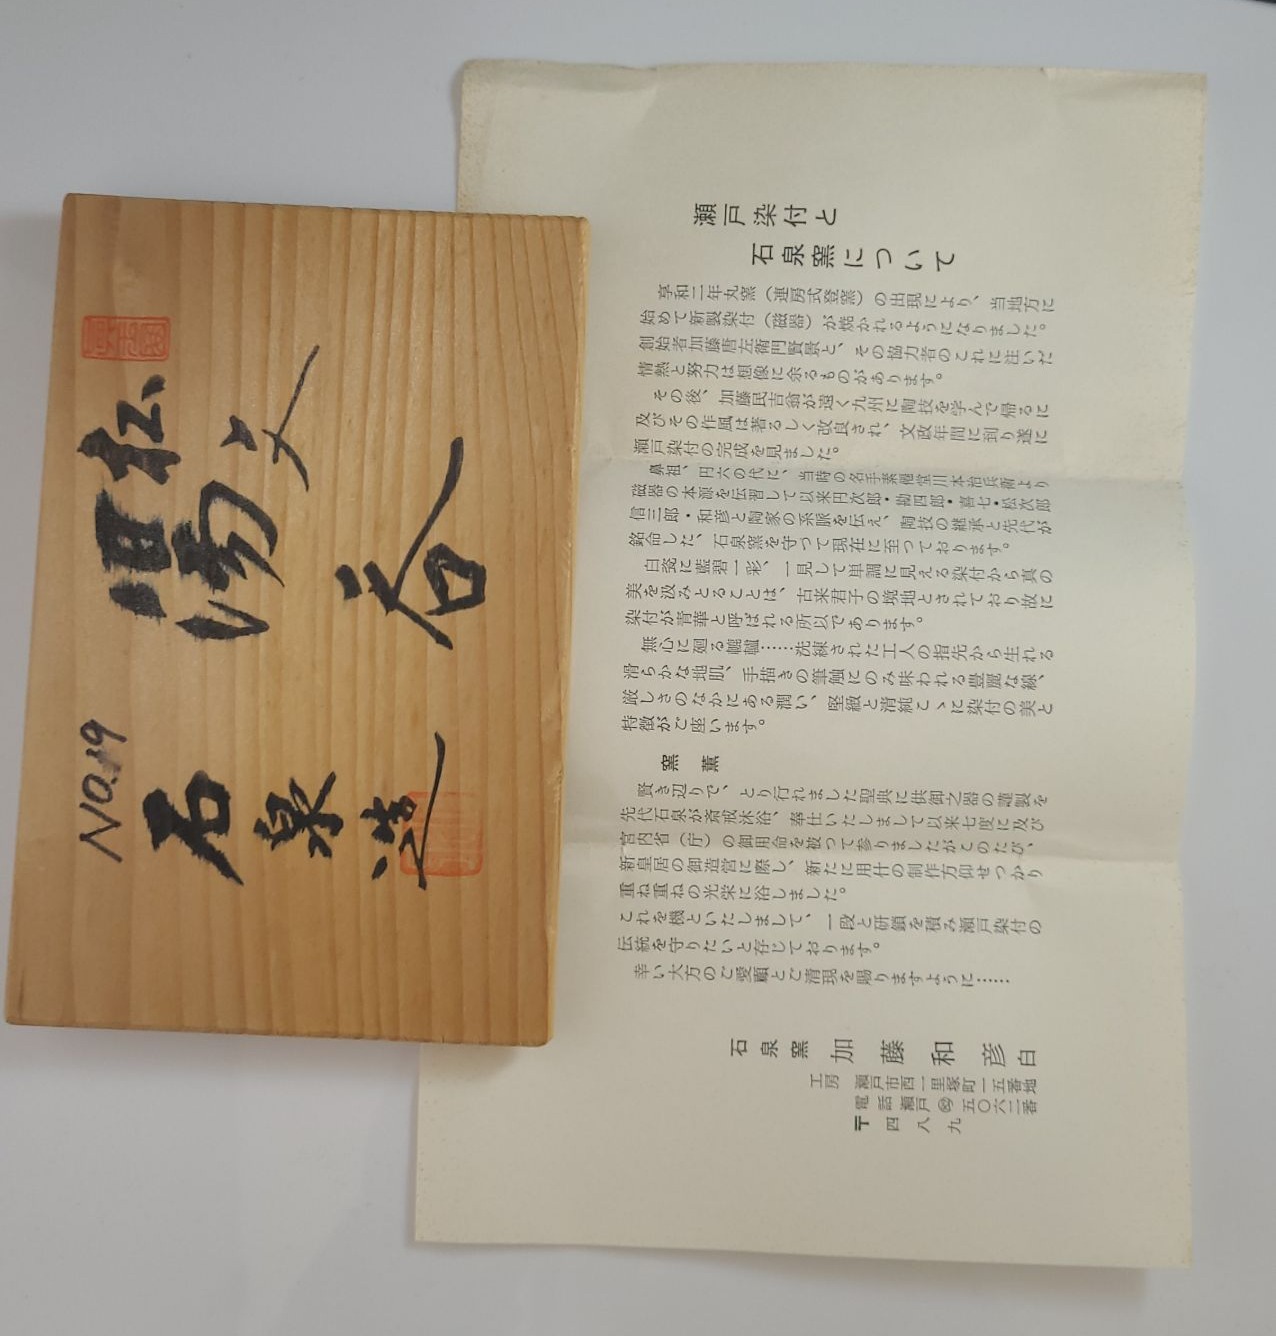 湯呑
石泉造
NO.19
瀬戸染付と
石泉窯について
享和二年丸窯（連房式登窯）の出現により、当地方に
始めて新製染付（磁器）が焼かれるようになりました。
創始者加藤唐左衛門賢景と、その協力者のこれに注いだ
情熱と努力は想像に余るものがあります。
その後、加藤民吉翁が遠く九州に陶技を学んで帰るに
及びその作風は著るしく改良され、文政年間に到り遂に
瀬戸染付の完成を見ました。
鼻祖、円六の代に、当時の名手素僊堂川本治兵衛より
磁器の本源を伝習して以来円次郎・勘四郎・喜七・松次郎
信三郎・和彦と陶家の系脈を伝え、陶技の継承と先代が
銘命した、石泉窯を守って現在に至っております。
白瓷に藍碧一彩、一見して単調に見える染付から真の
美を汲みとることは、古来君子の境地とされており故に
染付が青華と呼ばれる所以であります。
無心に廻る轆轤……洗練された工人の指先から生れる
滑らかな地肌、手描きの筆触にのみ味われる豊麗な線、
厳しさのなかにある潤い、堅緻と清純こゝに染付の美と
特徴がご座います。
窯薫
賢き辺りで、とり行れました聖典に供御之器の謹製を
先代石泉が斎戒沐浴、奉仕いたしまして以来七度に及び
宮内省（庁）の御用命を被って参りましたがこのたび、
新皇居の御造営に際し、新たに用什の制作方仰せつかり
重ね重ねの光栄に浴しました。
これを機といたしまして、一段と研鎖を積み瀬戸染付の
伝統を守りたいと存じております。
幸い大方のご愛顧とご清現を賜りますように……
石泉窯 加藤和彦白
工房 瀬戸市西一里塚町一五番地
電話瀬戸 五〇六二番
〒四八九